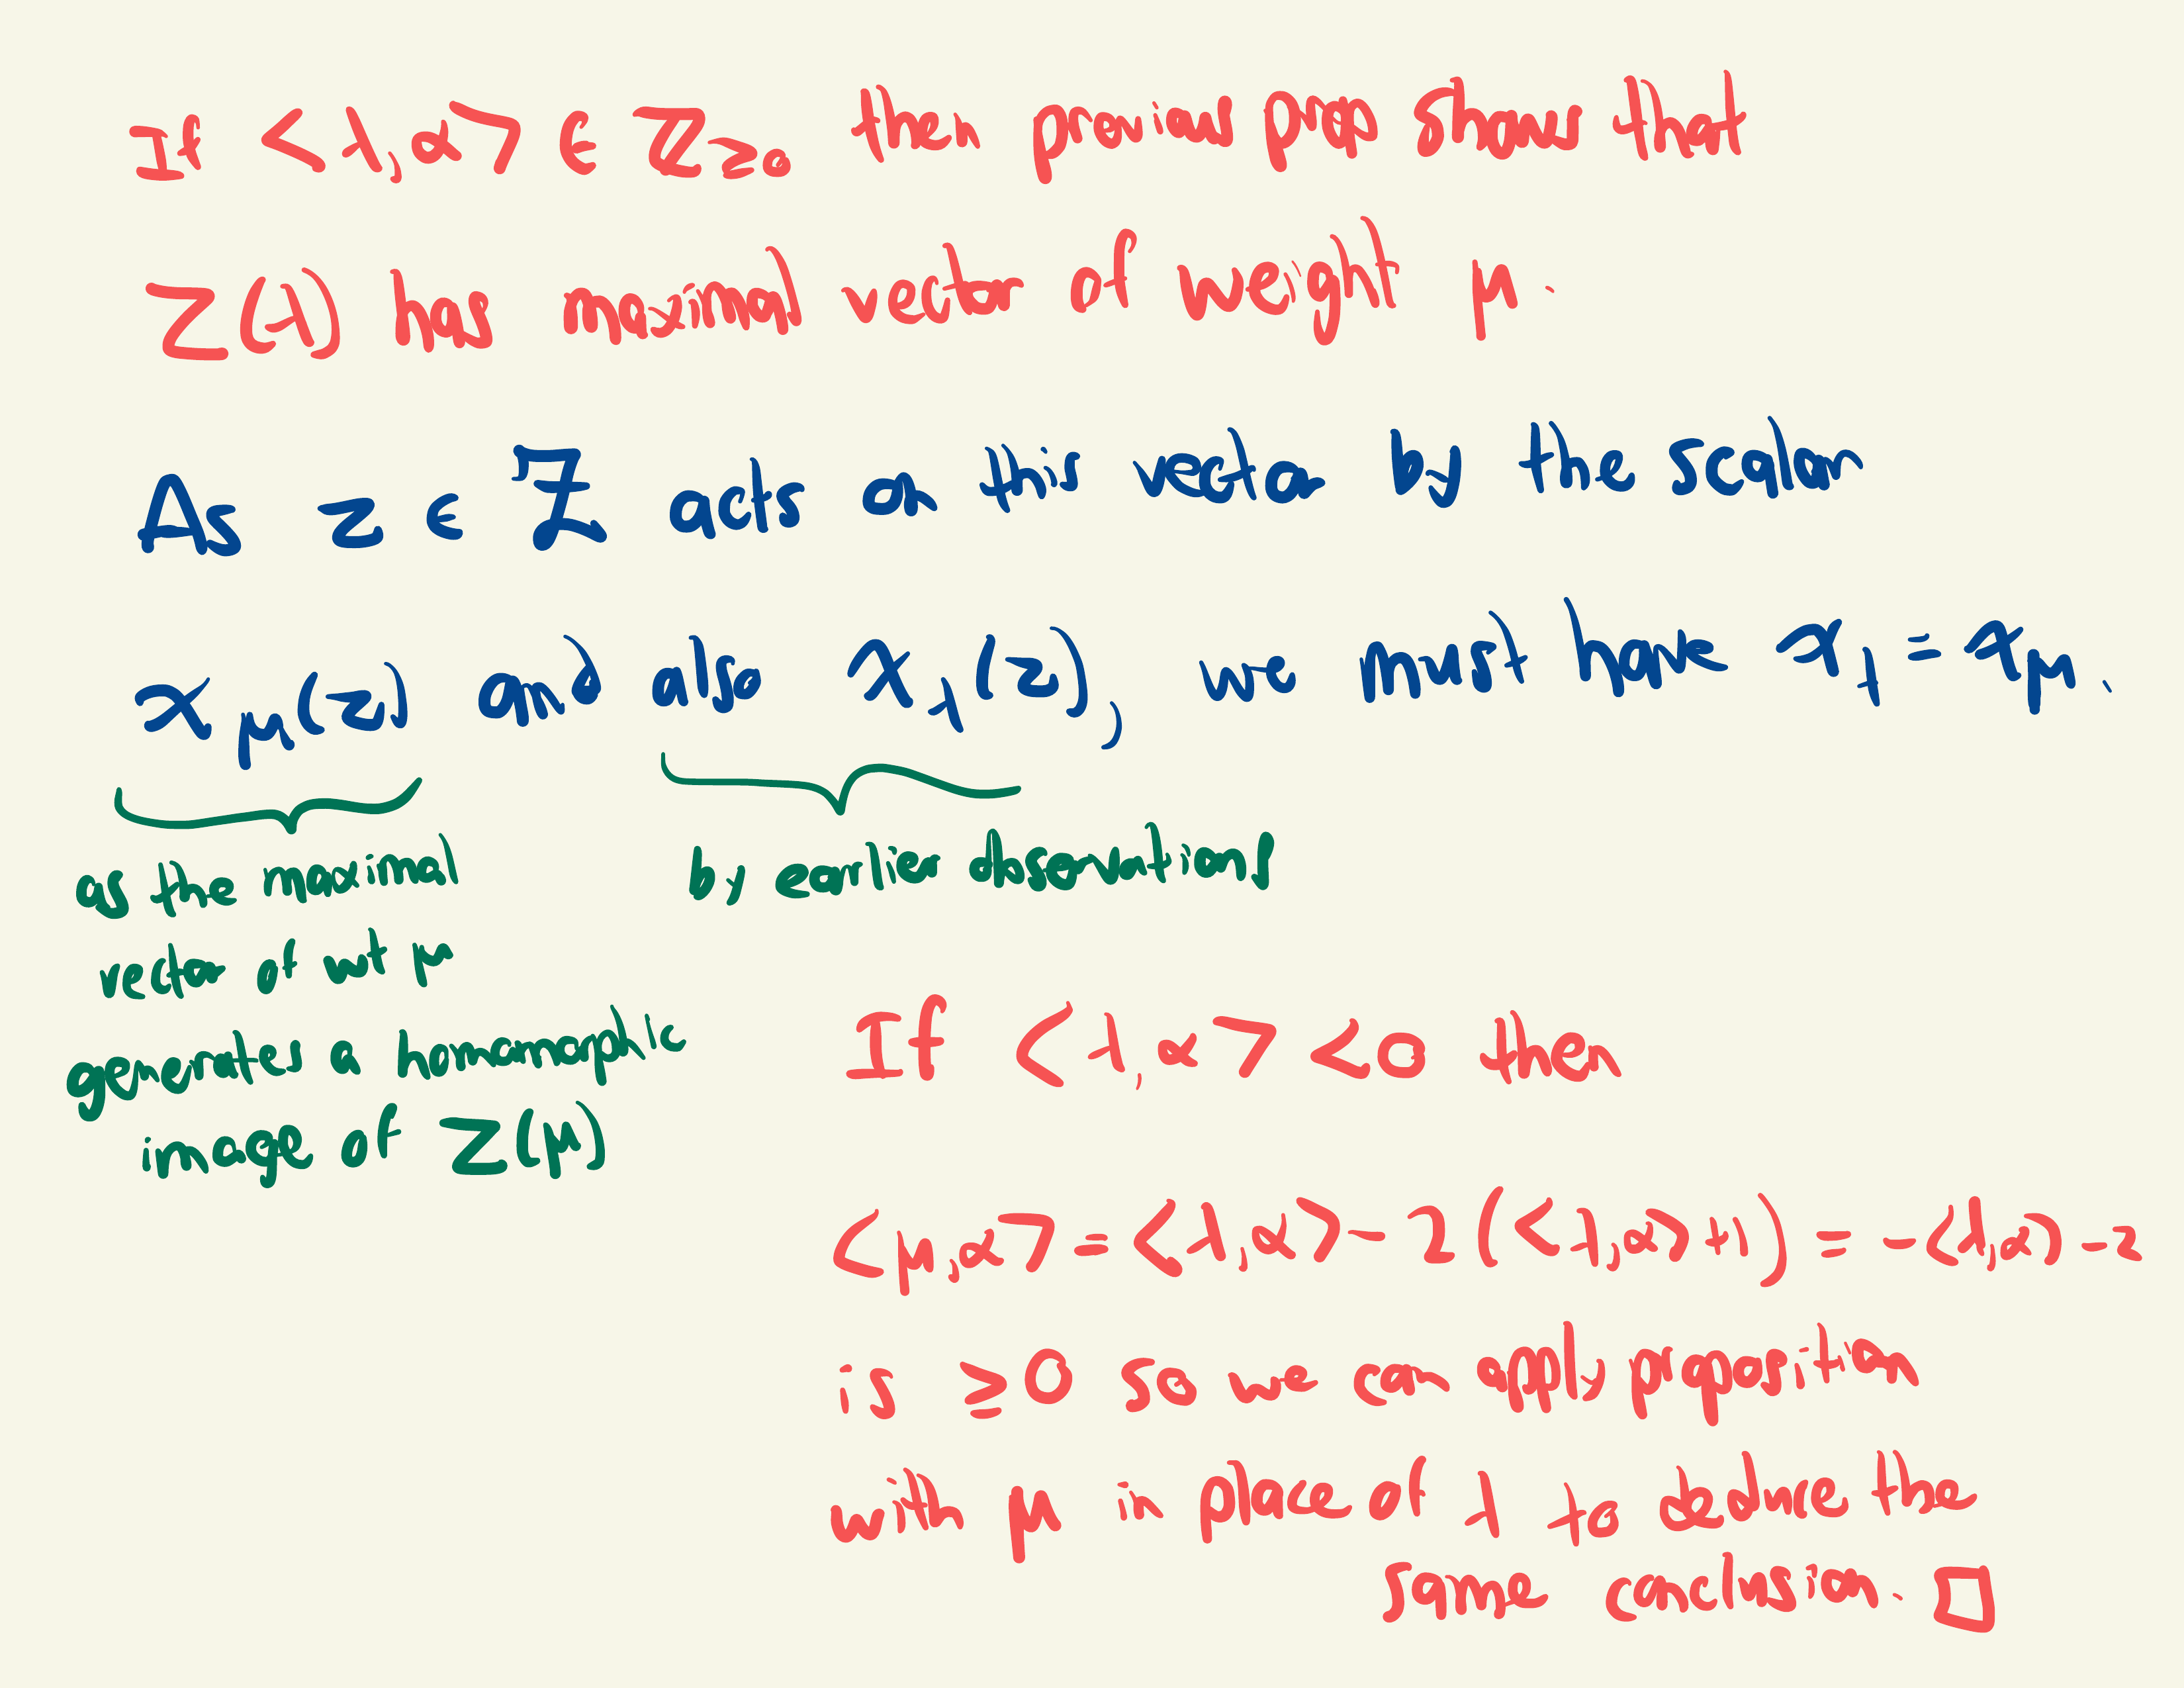 If <λ,α> ∈ ℤ≥0 then previous prop shows that
Z(λ) has maximal vector of weight μ.
As z ∈ Z acts on this vector by the scalar
χ_μ(z) and also χ_λ(z), we must have χ_λ = χ_μ.
as the maximal
vector of wt μ
generates a homomorphic
image of Z(μ)
by earlier observation!
If <λ,α> <0 then
<μ,α> = <λ,α> - 2(<λ,α>+1) = -<λ,α> -2
is ≥0 so we can apply proposition
with μ in place of λ to deduce the
same conclusion. □